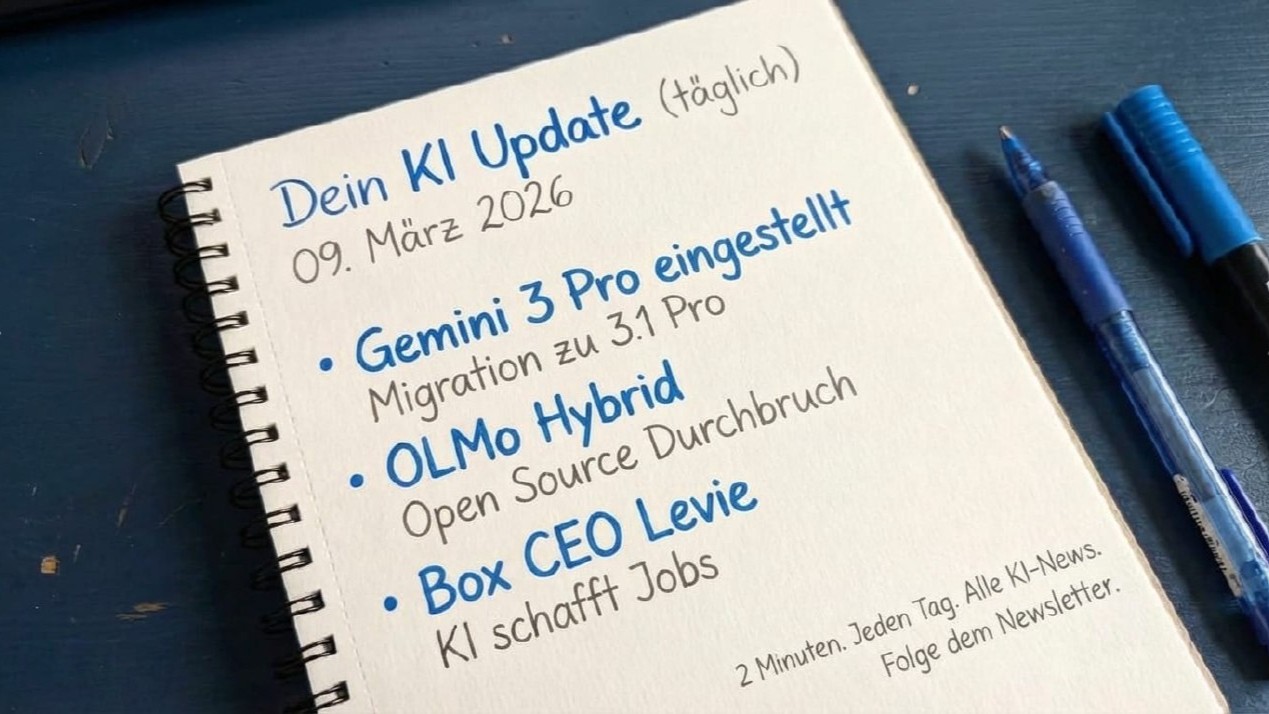 Dein KI Update (täglich)
09. März 2026
• Gemini 3 Pro eingestellt
Migration zu 3.1 Pro
• OLMo Hybrid
Open Source Durchbruch
• Box CEO Levie
KI schafft Jobs
2 Minuten. Jeden Tag. Alle KI-News.
Folge dem Newsletter.